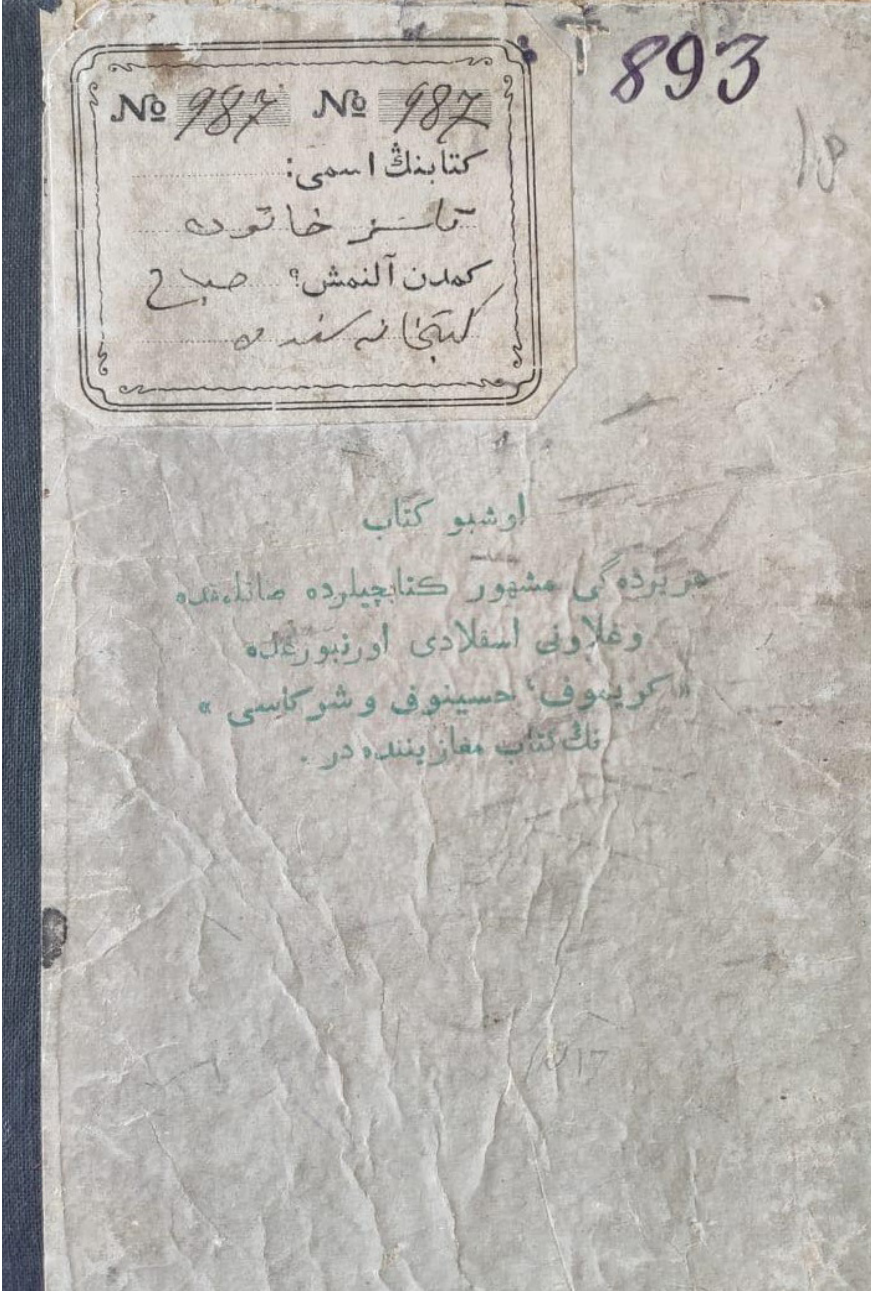 893
№ 987 № 987
كتابنڭ اسمى:
خاتون
كمدن آلنمش؟ صباح
كتبخانه سندن
اوشبو كتاب
هر يردەگى مشهور كتابچيلردە صاتلمقدە
وغلاونى اسقلادى اورنبورغدە
«كريموف، حسينوف وشركاسى»
نڭ كتاب مغازيننده در.